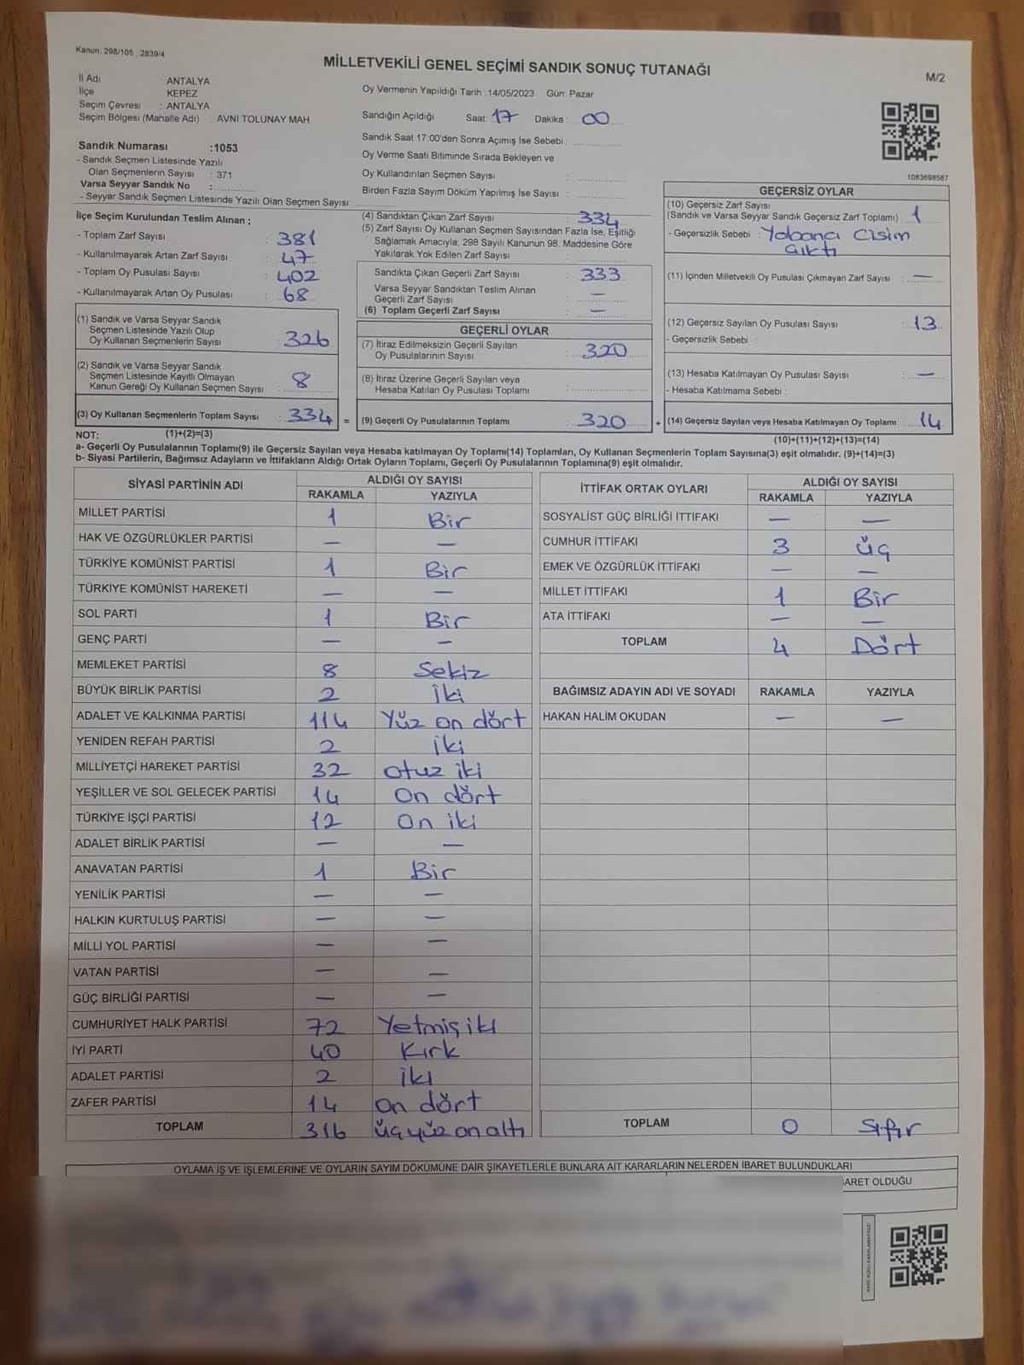 Kanun: 298/105 , 2839/4
MİLLETVEKİLİ GENEL SEÇİMİ SANDIK SONUÇ TUTANAĞI
M/2
İl Adı ANTALYA
İlçe KEPEZ
Seçim Çevresi : ANTALYA
Seçim Bölgesi (Mahalle Adı) : AVNİ TOLUNAY MAH
Sandık Numarası :1053
- Sandık Seçmen Listesinde Yazılı
Olan Seçmenlerin Sayısı : 371
Varsa Seyyar Sandık No :
- Seyyar Sandık Seçmen Listesinde Yazılı Olan Seçmen Sayısı
Oy Vermenin Yapıldığı Tarih :14/05/2023 Gün: Pazar
Sandığın Açıldığı Saat: 17 Dakika: 00
Sandık Saat 17:00'den Sonra Açımış İse Sebebi :
Oy Verme Saati Bitiminde Sırada Bekleyen ve
Oy Kullandırılan Seçmen Sayısı :
Birden Fazla Sayım Döküm Yapılmış İse Sayısı :
1083698587
İlçe Seçim Kurulundan Teslim Alınan ;
- Toplam Zarf Sayısı : 381
- Kullanılmayarak Artan Zarf Sayısı : 47
- Toplam Oy Pusulası Sayısı : 402
- Kullanılmayarak Artan Oy Pusulası : 68
(1) Sandık ve Varsa Seyyar Sandık
Seçmen Listesinde Yazılı Olup
Oy Kullanan Seçmenlerin Sayısı 326
(2) Sandık ve Varsa Seyyar Sandık
Seçmen Listesinde Kayıtlı Olmayan
Kanun Gereği Oy Kullanan Seçmen Sayısı 8
(3) Oy Kullanan Seçmenlerin Toplam Sayısı : 334 =
(4) Sandıktan Çıkan Zarf Sayısı : 334
(5) Zarf Sayısı Oy Kullanan Seçmen Sayısından Fazla İse, Eşitliği
Sağlamak Amacıyla; 298 Sayılı Kanunun 98. Maddesine Göre
Yakılarak Yok Edilen Zarf Sayısı :
Sandıkta Çıkan Geçerli Zarf Sayısı : 333
Varsa Seyyar Sandıktan Teslim Alınan
Geçerli Zarf Sayısı : —
(6) Toplam Geçerli Zarf Sayısı : —
GEÇERLİ OYLAR
(7) İtiraz Edilmeksizin Geçerli Sayılan
Oy Pusulalarının Sayısı : 320
(8) İtiraz Üzerine Geçerli Sayılan veya
Hesaba Katılan Oy Pusulası Toplamı
(9) Geçerli Oy Pusulalarının Toplamı : 320
GEÇERSİZ OYLAR
(10) Geçersiz Zarf Sayısı
(Sandık ve Varsa Seyyar Sandık Geçersiz Zarf Toplamı) 1
- Geçersizlik Sebebi : Yabancı Cisim
Çıktı
(11) İçinden Milletvekili Oy Pusulası Çıkmayan Zarf Sayısı : —
(12) Geçersiz Sayılan Oy Pusulası Sayısı : 13
- Geçersizlik Sebebi :
(13) Hesaba Katılmayan Oy Pusulası Sayısı : —
- Hesaba Katılmama Sebebi :
(14) Geçersiz Sayılan veya Hesaba Katılmayan Oy Toplamı 14
NOT: (1)+(2)=(3) (10)+(11)+(12)+(13)=(14)
a- Geçerli Oy Pusulalarının Toplamı(9) ile Geçersiz Sayılan veya Hesaba katılmayan Oy Toplamı(14) Toplamları, Oy Kullanan Seçmenlerin Toplam Sayısına(3) eşit olmalıdır. (9)+(14)=(3)
b- Siyasi Partilerin, Bağımsız Adayların ve İttifakların Aldığı Ortak Oyların Toplamı, Geçerli Oy Pusulalarının Toplamına(9) eşit olmalıdır.
SİYASİ PARTİNİN ADI ALDIĞI OY SAYISI
RAKAMLA YAZIYLA
MİLLET PARTİSİ 1 Bir
HAK VE ÖZGÜRLÜKLER PARTİSİ — —
TÜRKİYE KOMÜNİST PARTİSİ 1 Bir
TÜRKİYE KOMÜNİST HAREKETİ — —
SOL PARTİ 1 Bir
GENÇ PARTİ — —
MEMLEKET PARTİSİ 8 Sekiz
BÜYÜK BİRLİK PARTİSİ 2 İki
ADALET VE KALKINMA PARTİSİ 114 Yüz on dört
YENİDEN REFAH PARTİSİ 2 iki
MİLLİYETÇİ HAREKET PARTİSİ 32 otuz iki
YEŞİLLER VE SOL GELECEK PARTİSİ 14 On dört
TÜRKİYE İŞÇİ PARTİSİ 12 On iki
ADALET BİRLİK PARTİSİ — —
ANAVATAN PARTİSİ 1 Bir
YENİLİK PARTİSİ — —
HALKIN KURTULUŞ PARTİSİ — —
MİLLİ YOL PARTİSİ — —
VATAN PARTİSİ — —
GÜÇ BİRLİĞİ PARTİSİ — —
CUMHURİYET HALK PARTİSİ 72 Yetmiş iki
İYİ PARTİ 40 Kırk
ADALET PARTİSİ 2 iki
ZAFER PARTİSİ 14 on dört
TOPLAM 316 üçyüz on altı
İTTİFAK ORTAK OYLARI ALDIĞI OY SAYISI
RAKAMLA YAZIYLA
SOSYALİST GÜÇ BİRLİĞİ İTTİFAKI — —
CUMHUR İTTİFAKI 3 üç
EMEK VE ÖZGÜRLÜK İTTİFAKI — —
MİLLET İTTİFAKI 1 Bir
ATA İTTİFAKI — —
TOPLAM 4 Dört
BAĞIMSIZ ADAYIN ADI VE SOYADI RAKAMLA YAZIYLA
HAKAN HALİM OKUDAN — —
TOPLAM 0 Sıfır
OYLAMA İŞ VE İŞLEMLERİNE VE OYLARIN SAYIM DÖKÜMÜNE DAİR ŞİKAYETLERLE BUNLARA AİT KARARLARIN NELERDEN İBARET BULUNDUKLARI
BARET OLDUĞU